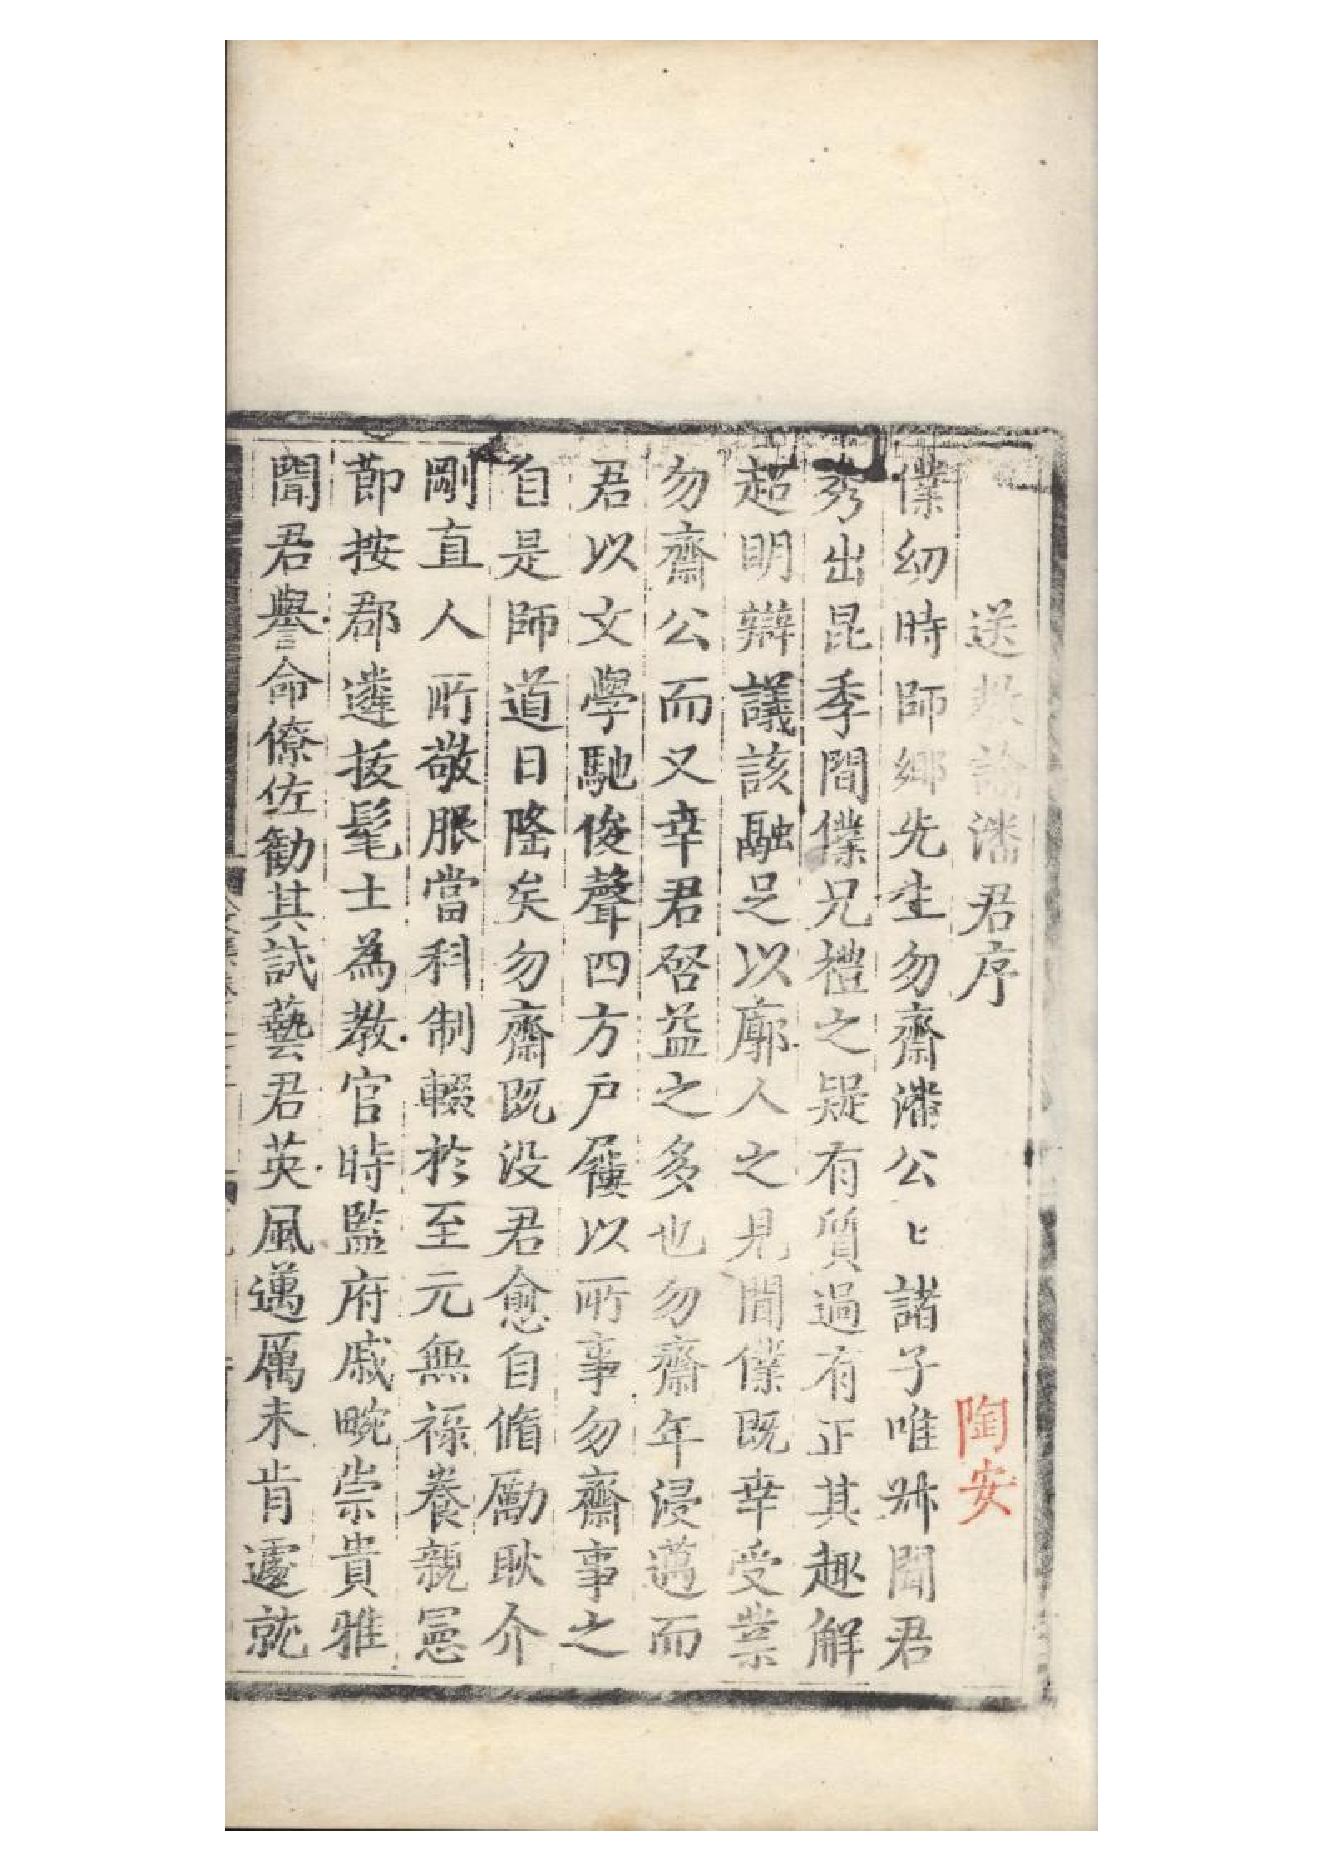 送教諭潘君序
陶安
僕幼時師鄉先生勿齋潘公〻諸子唯㭍聞君
秀出昆季間僕兄禮之疑有質過有正其趣解
超明辯議該融足以廓人之見聞僕既幸受業
勿齋公而又幸君啓益之多也勿齋年浸邁而
君以文學馳俊聲四方戶屨以所事勿齋事之
自是師道日隆矣勿齋既没君愈自脩勵耿介
剛直人所敬服當科制輟於至元無祿養親憲
節按郡遴拔髦士為教官時監府戚畹崇貴雅
聞君譽命僚佐勸其試藝君英風邁厲未肯遽就